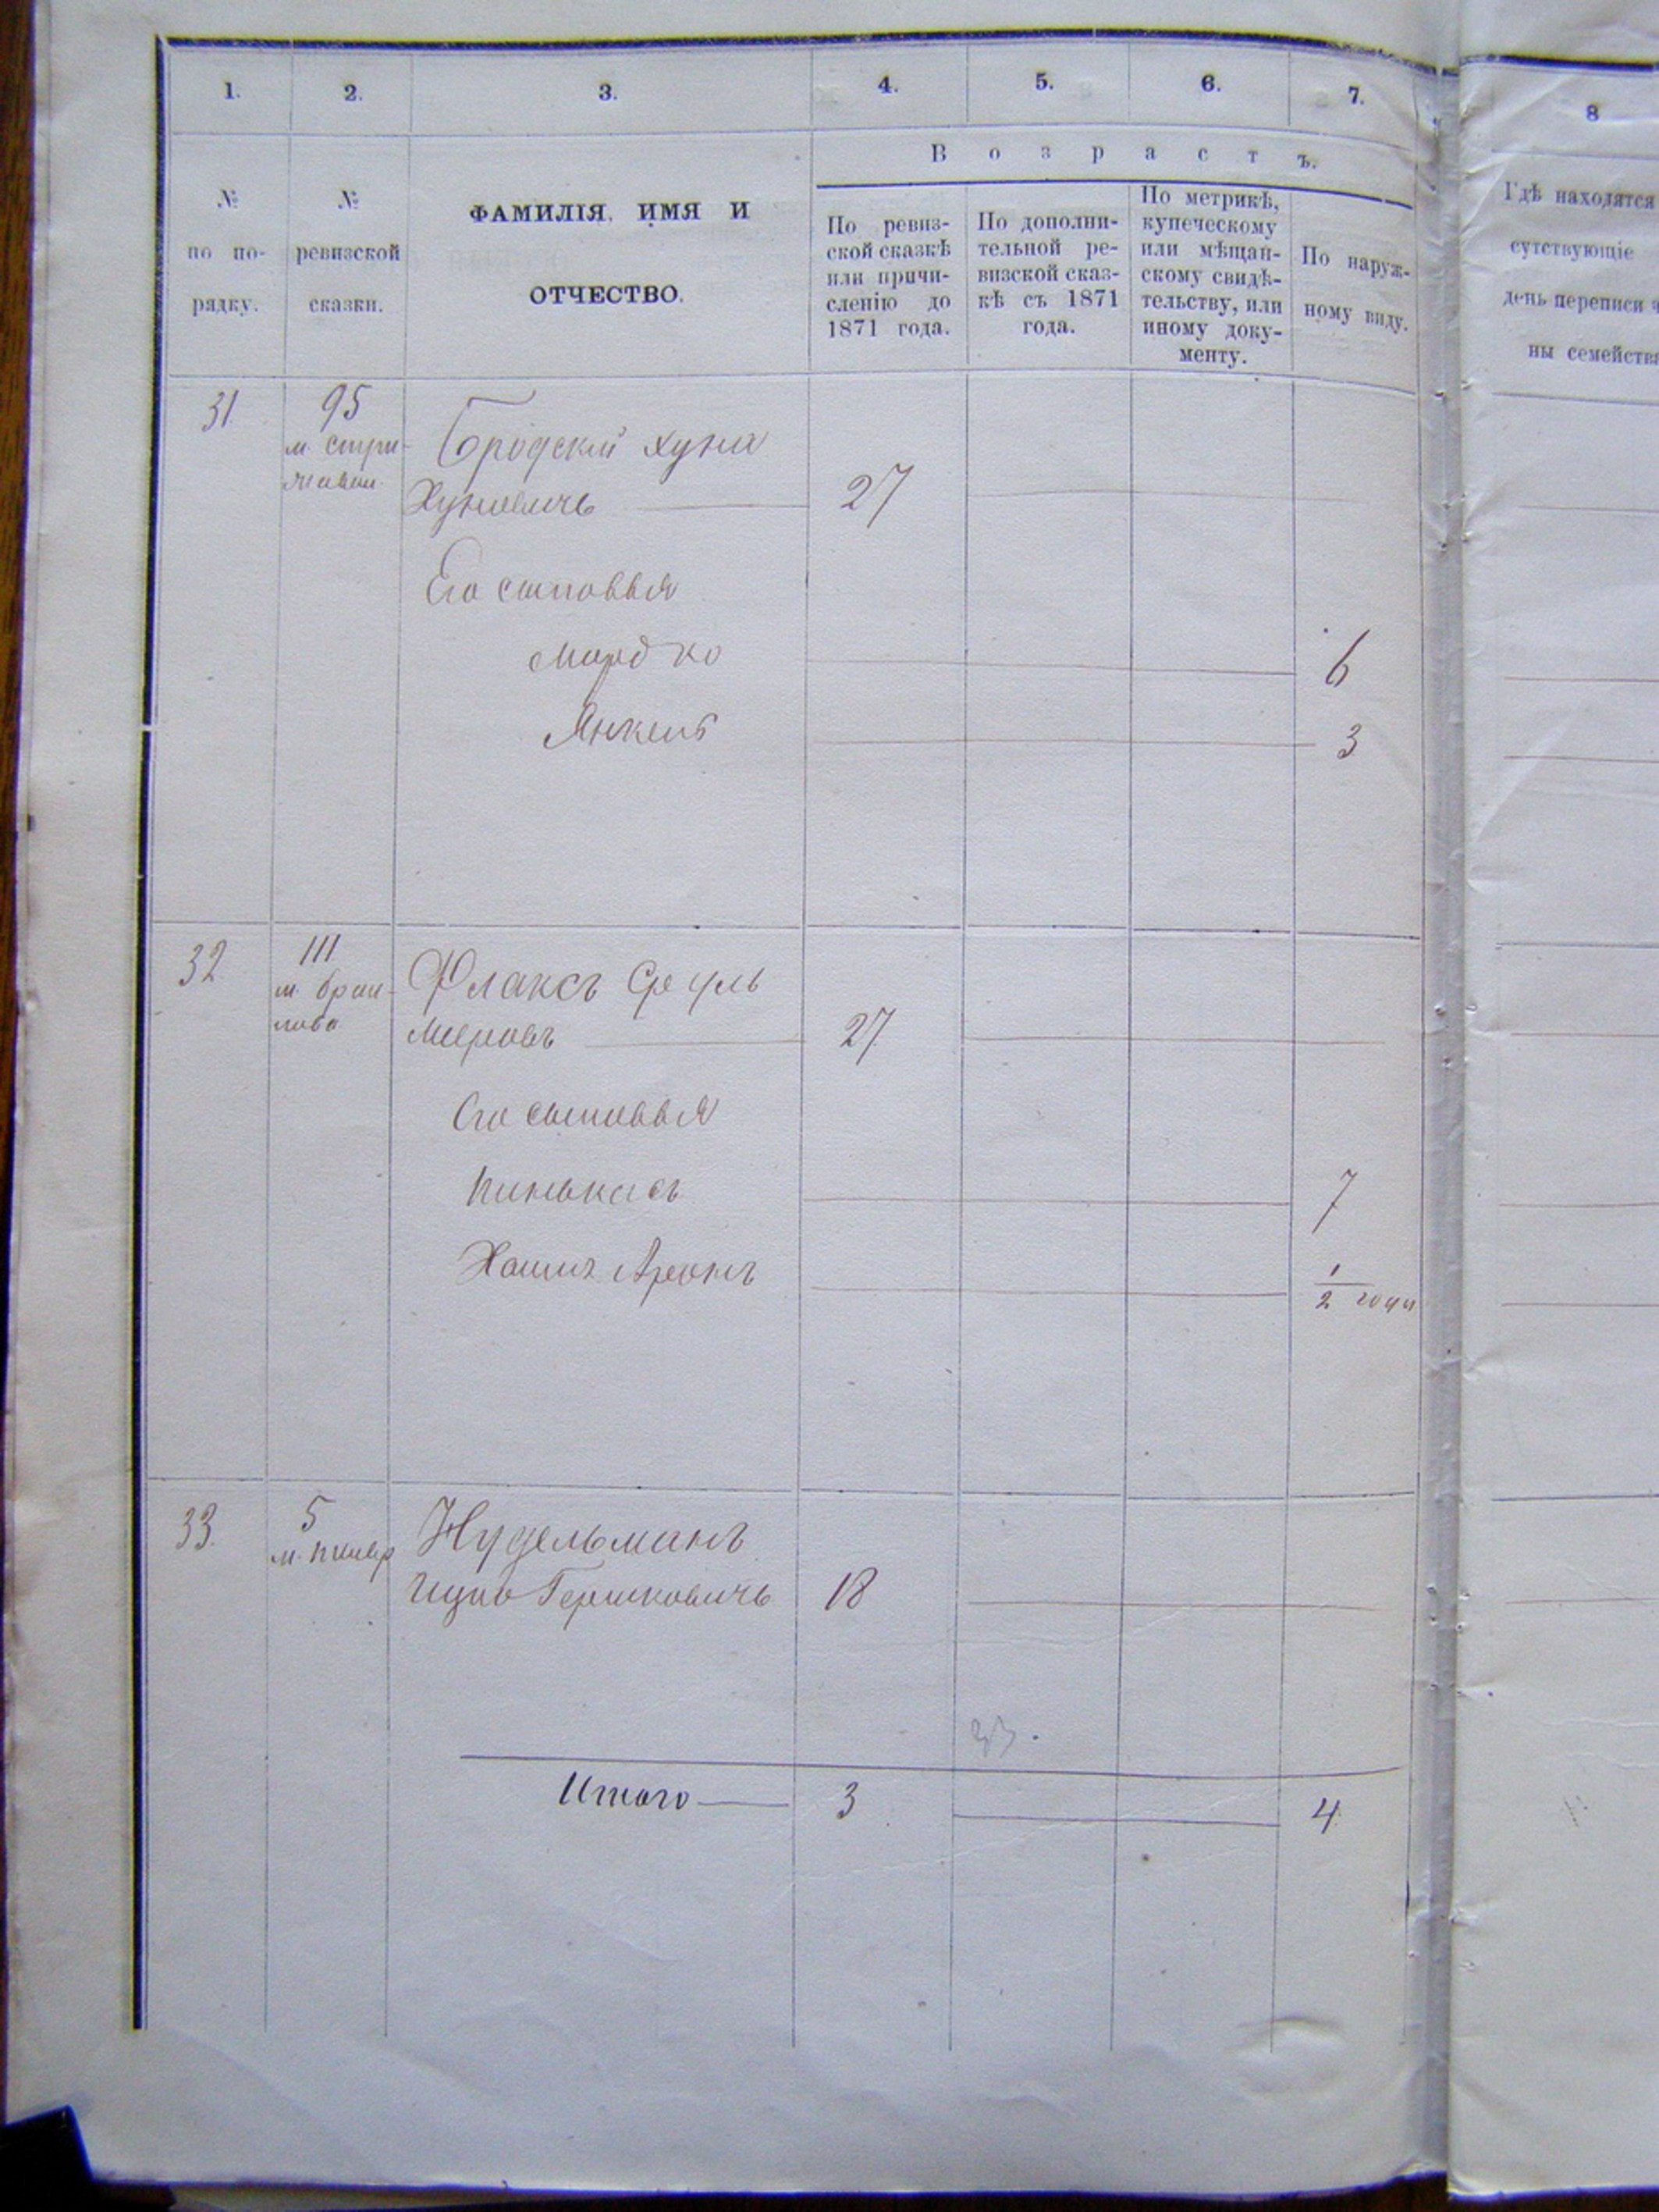 1. 2. 3. 4. 5. 6. 7.
8
В о з р а с т ъ.
№
по по-
рядку.
№
ревизской
сказки.
ФАМИЛІЯ, ИМЯ И
ОТЧЕСТВО.
По ревиз-
ской сказкѣ
или причи-
сленію до
1871 года.
По дополни-
тельной ре-
визской сказ-
кѣ съ 1871
года.
По метрикѣ,
купеческому
или мѣщан-
скому свидѣ-
тельству, или
иному доку-
менту.
По наруж-
ному виду.
Гдѣ находятся
сутствующіе
день переписи ч
ны семейства
31 95
м. Стри-
жавки
Бродскій Хуна
Хуновичъ 27
Его сыновья
Мордко 6
Янкель 3
32 111
м. Браи-
лова
Флаксъ Сруль
Меровъ 27
Его сыновья
Пинькасъ 7
Хаимъ Аронъ 1/2 года
33. 5
Нудельманъ
Ицко Гершковичъ 18
33.
Итого 3 4